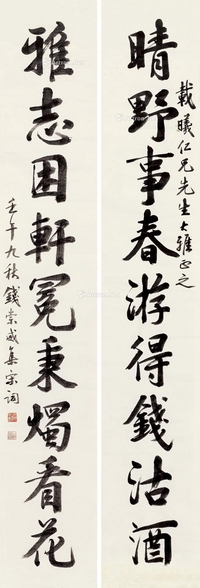 載曦仁兄先生大雅正之
晴野事春游得錢沽酒
雅志困軒冕秉燭看花
壬午九秋錢崇威集宋詞